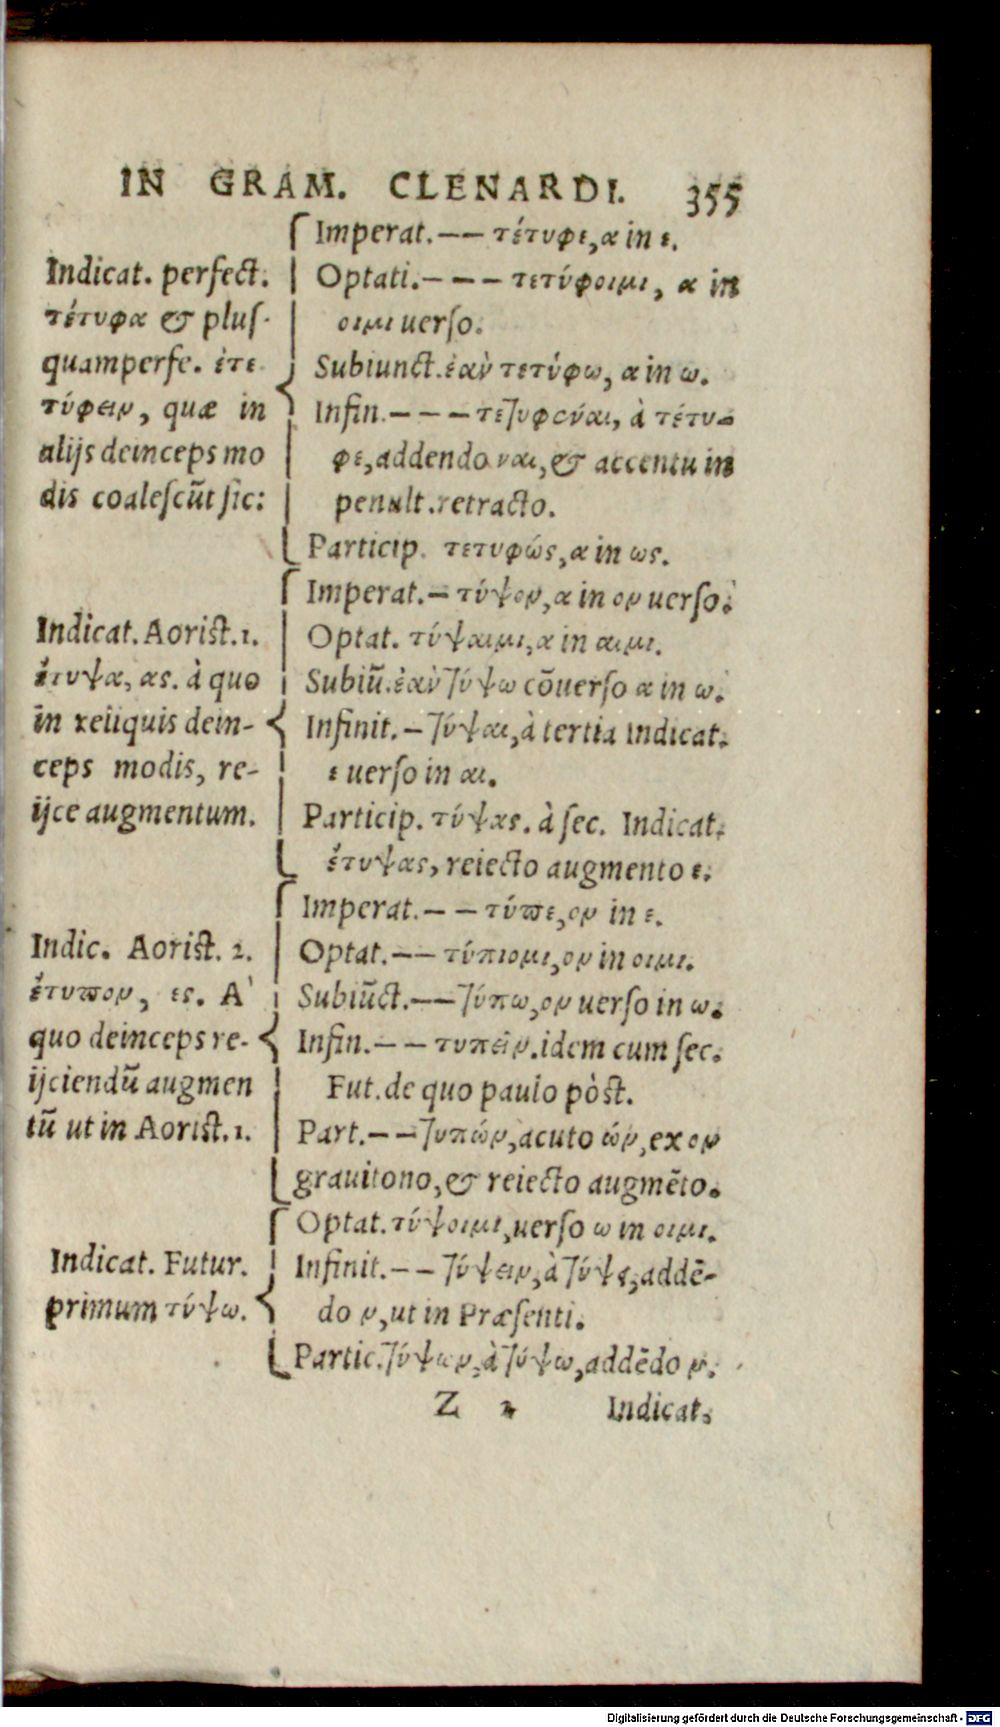 IN GRAM. CLENARDI. 355
Indicat. perfect.
τέτυφα & pluſ-
quamperfe. ἐτε
τύφειν, quæ in
alijs deinceps mo
dis coaleſcūt ſic:
Imperat.—— τέτυφε, α in ε.
Optati.——— τετύφοιμι, α in
οιμι uerſo.
Subiunct. ἐὰν τετύφω, α in ω.
Infin.——— τετυφέναι, à τέτυ-
φε, addendo ναι, & accentu in
penult. retracto.
Particip. τετυφώς, α in ως.
Indicat. Aorist. 1.
ἔτυψα, ας. à quo
in reliquis dein-
ceps modis, re-
ijce augmentum.
Imperat.— τύψον, α in ον uerſo.
Optat. τύψαιμι, α in αιμι.
Subiū. ἐὰν τύψω cōuerſo α in ω.
Infinit.— τύψαι, à tertia Indicat.
ε uerſo in αι.
Particip. τύψας. à ſec. Indicat.
ἔτυψας, reiecto augmento ε.
Indic. Aorist. 2.
ἔτυπον, ες. A'
quo deinceps re-
ijciendū augmen
tū ut in Aorist. 1.
Imperat.—— τύπε, ον in ε.
Optat.—— τύπιομι, ον in οιμι.
Subiūct.—— τύπω, ον uerſo in ω.
Infin.—— τυπεῖν. idem cum ſec.
Fut. de quo paulo pòst.
Part.—— τυπών, acuto ών, ex ον
grauitono, & reiecto augmēto.
Indicat. Futur.
primum τύψω.
Optat. τύψοιμι, uerſo ω in οιμι.
Infinit.—— τύψειν, à τύψε, addē-
do ν, ut in Præſenti.
Partic. τύψων, à τύψω, addēdo ν.
Z 2 Indicat.
Digitalisierung gefördert durch die Deutsche Forschungsgemeinschaft - DFG